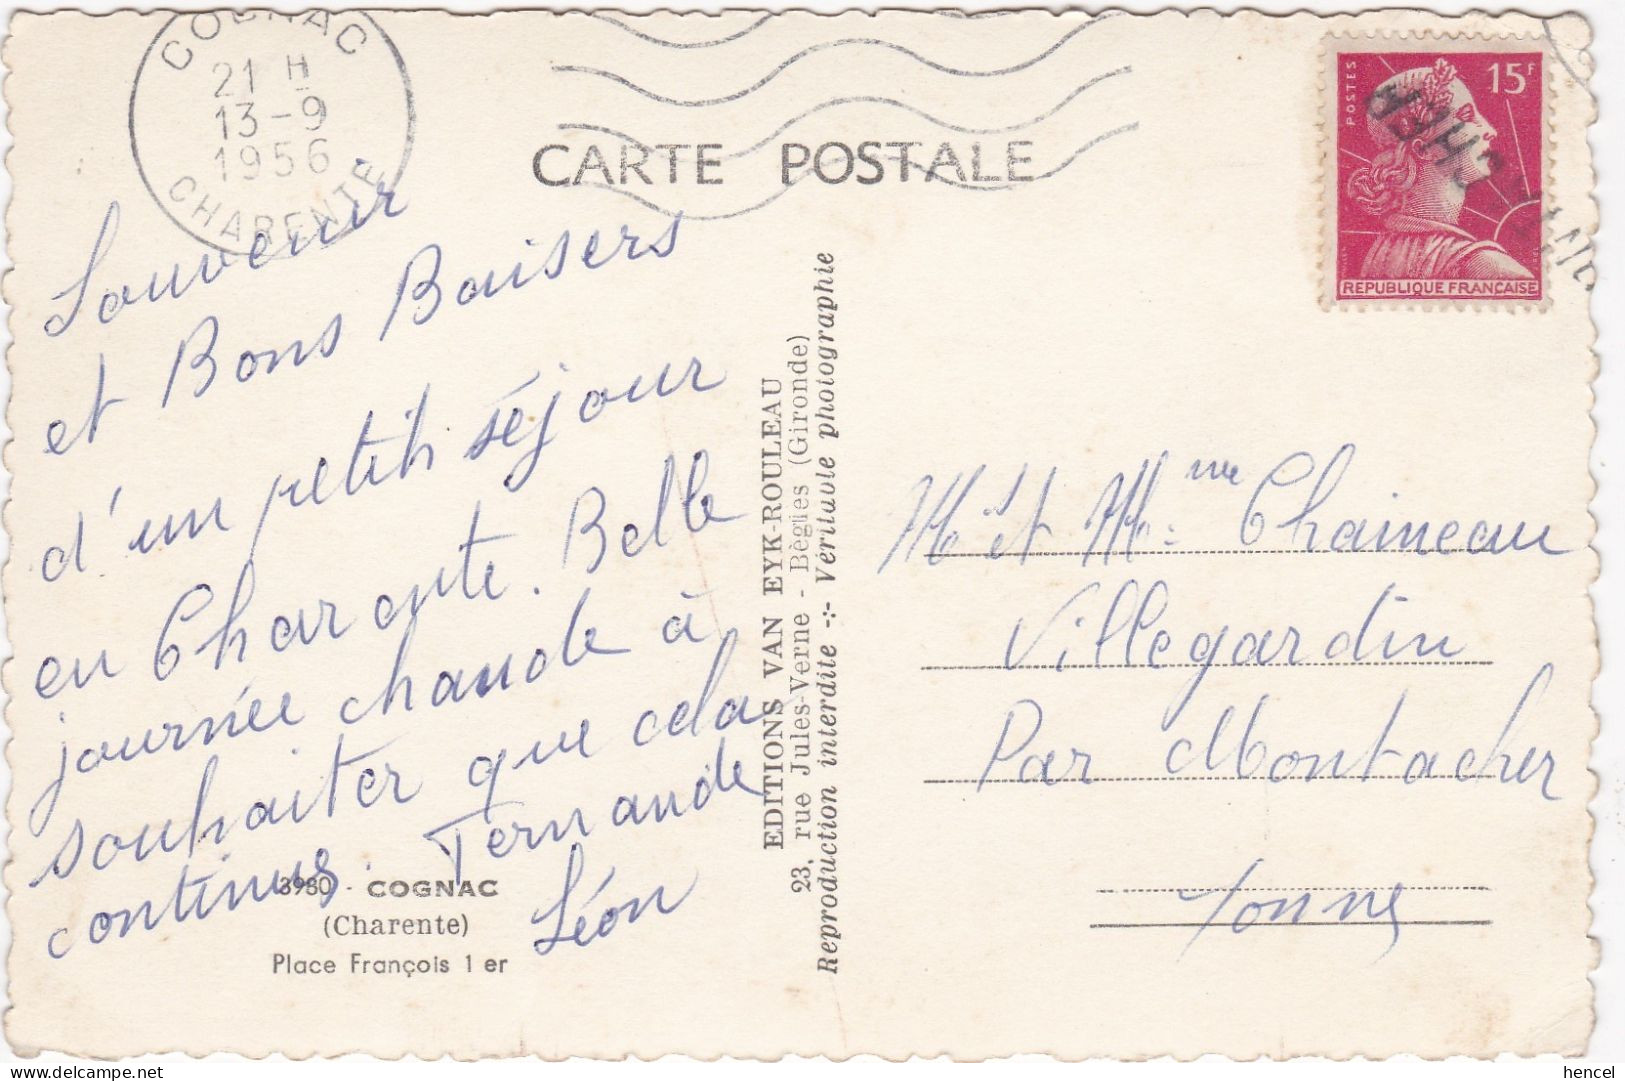 COGNAC
21 H
13-9
1956
CHARENTE
CARTE POSTALE
POSTES
15F
REPUBLIQUE FRANÇAISE
Souvenir
et Bons Baisers
d'un petit séjour
en Charente. Belle
journée chaude à
souhaiter que cela
continue. Fernande
Léon
3980 - COGNAC
(Charente)
Place François 1 er
EDITIONS VAN EYK-ROULEAU
23, rue Jules-Verne - Bègles (Gironde)
Reproduction interdite -:- Véritable photographie
Mr et Mme Chaineau
Villegardin
Par Montacher
Yonne
hencel